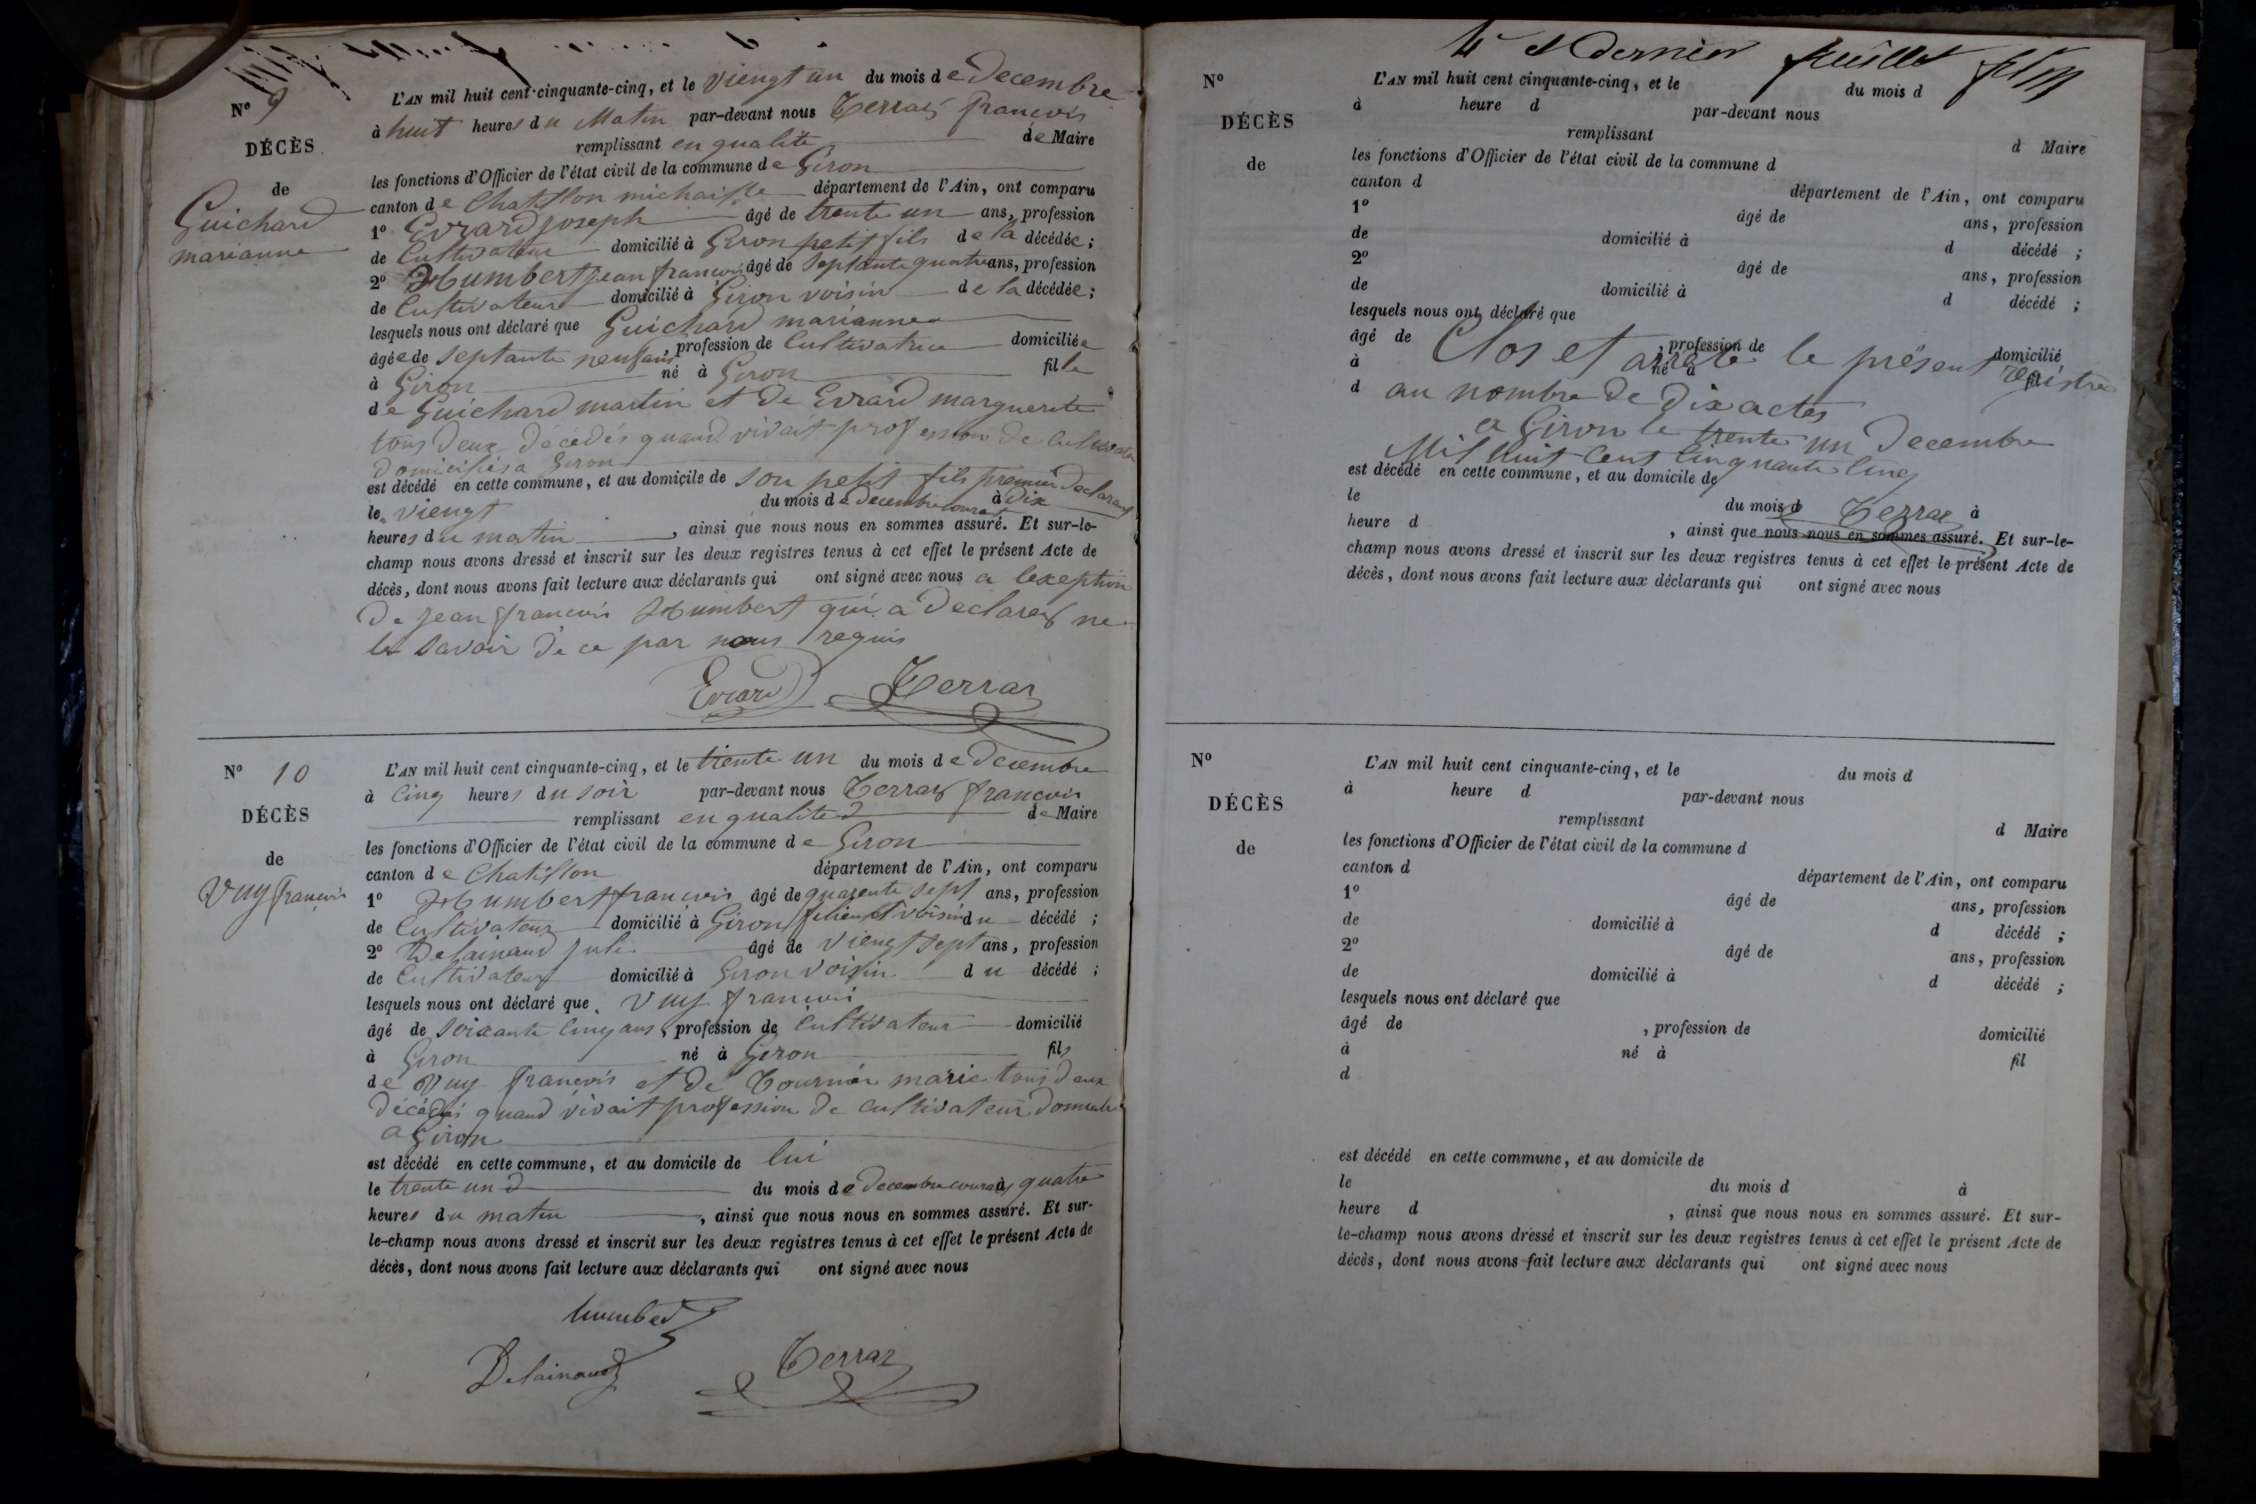 N° 9
DÉCÈS
de
Guichard
marianne
L'AN mil huit cent cinquante-cinq, et le viengt un du mois de Decembre
à huit heures du Matin par-devant nous Terraz francois
remplissant en qualité de Maire
les fonctions d'Officier de l'état civil de la commune de Giron
canton de Chatillon michaille département de l'Ain, ont comparu
1° Evrard joseph âgé de trente un ans, profession
de Cultivateur domicilié à Giron petit fils de la décédée;
2° Humbert jean francois âgé de septante quatre ans, profession
de Cultivateur domicilié à Giron voisin de la décédée;
lesquels nous ont déclaré que Guichard marianne
âgée de septante neuf ans, profession de Cultivatrice domiciliée
à Giron né à Giron fille
de Guichard martin et de Evrard marguerite
tous deux décédés quand vivait profession de cultivateur
Domiciliés a Giron
est décédé en cette commune, et au domicile de son petit fils premier Declarant
le viengt du mois de decembre courant à Dix
heures du matin, ainsi que nous nous en sommes assuré. Et sur-le-
champ nous avons dressé et inscrit sur les deux registres tenus à cet effet le présent Acte de
décès, dont nous avons fait lecture aux déclarants qui ont signé avec nous a lexeption
De jean francois Humbert qui a declarez ne
le savoir de ce par nous requis
Evrard Terraz
N° 10
DÉCÈS
de
Vuy francois
L'AN mil huit cent cinquante-cinq, et le trente un du mois de Decembre
à Cinq heures du soir par-devant nous Terraz francois
remplissant en qualité de Maire
les fonctions d'Officier de l'état civil de la commune de Giron
canton de Chatillon département de l'Ain, ont comparu
1° Humbert francois âgé de quarente sept ans, profession
de Cultivateur domicilié à Giron et voisin du décédé;
2° Delainaud âgé de viengt sept ans, profession
de Cultivateur domicilié à Giron voisin du décédé;
lesquels nous ont déclaré que Vuy francois
âgé de soixante cinq ans, profession de cultivateur domicilié
à Giron né à Giron fils
de Vuy francois et de Tournier marie tous deux
décédés quand vivait profession de cultivateur Domicilié
a Giron
est décédé en cette commune, et au domicile de lui
le trente un du mois de decembre courant à quatre
heures du matin, ainsi que nous nous en sommes assuré. Et sur-
le-champ nous avons dressé et inscrit sur les deux registres tenus à cet effet le présent Acte de
décès, dont nous avons fait lecture aux déclarants qui ont signé avec nous
humbert
Delainaud Terraz
4e et dernier feuillet
N°
DÉCÈS
de
L'AN mil huit cent cinquante-cinq, et le du mois d
à heure d par-devant nous
remplissant d Maire
les fonctions d'Officier de l'état civil de la commune d
canton d département de l'Ain, ont comparu
1° âgé de ans, profession
de domicilié à d décédé ;
2° âgé de ans, profession
de domicilié à d décédé ;
lesquels nous ont déclaré que
âgé de , profession de domicilié
à né à fil
d
Clos et arrete le présent registre
au nombre de Dix actes
a Giron le trente un Decembre
Mil huit Cent Cinquante Cinq
est décédé en cette commune, et au domicile de
le du mois d à
Terraz
heure d , ainsi que nous nous en sommes assuré. Et sur-le-
champ nous avons dressé et inscrit sur les deux registres tenus à cet effet le présent Acte de
décès, dont nous avons fait lecture aux déclarants qui ont signé avec nous
N°
DÉCÈS
de
L'AN mil huit cent cinquante-cinq, et le du mois d
à heure d par-devant nous
remplissant d Maire
les fonctions d'Officier de l'état civil de la commune d
canton d département de l'Ain, ont comparu
1° âgé de ans, profession
de domicilié à d décédé ;
2° âgé de ans, profession
de domicilié à d décédé ;
lesquels nous ont déclaré que
âgé de , profession de domicilié
à né à fil
d
est décédé en cette commune, et au domicile de
le du mois d à
heure d , ainsi que nous nous en sommes assuré. Et sur-
le-champ nous avons dressé et inscrit sur les deux registres tenus à cet effet le présent Acte de
décès, dont nous avons fait lecture aux déclarants qui ont signé avec nous